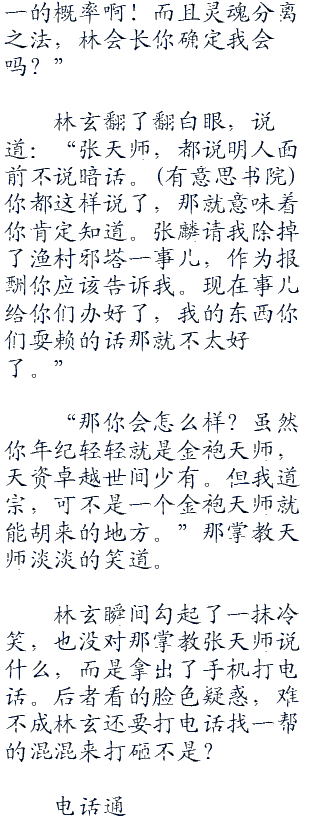 一的概率啊！而且灵魂分离
之法，林会长你确定我会
吗？”
林玄翻了翻白眼，说
道：“张天师，都说明人面
前不说暗话。(有意思书院)
你都这样说了，那就意味着
你肯定知道。张麟请我除掉
了渔村邪塔一事儿，作为报
酬你应该告诉我。现在事儿
给你们办好了，我的东西你
们耍赖的话那就不太好
了。”
“那你会怎么样？虽然
你年纪轻轻就是金袍天师，
天资卓越世间少有。但我道
宗，可不是一个金袍天师就
能胡来的地方。”那掌教天
师淡淡的笑道。
林玄瞬间勾起了一抹冷
笑，也没对那掌教张天师说
什么，而是拿出了手机打电
话。后者看的脸色疑惑，难
不成林玄还要打电话找一帮
的混混来打砸不是？
电话通